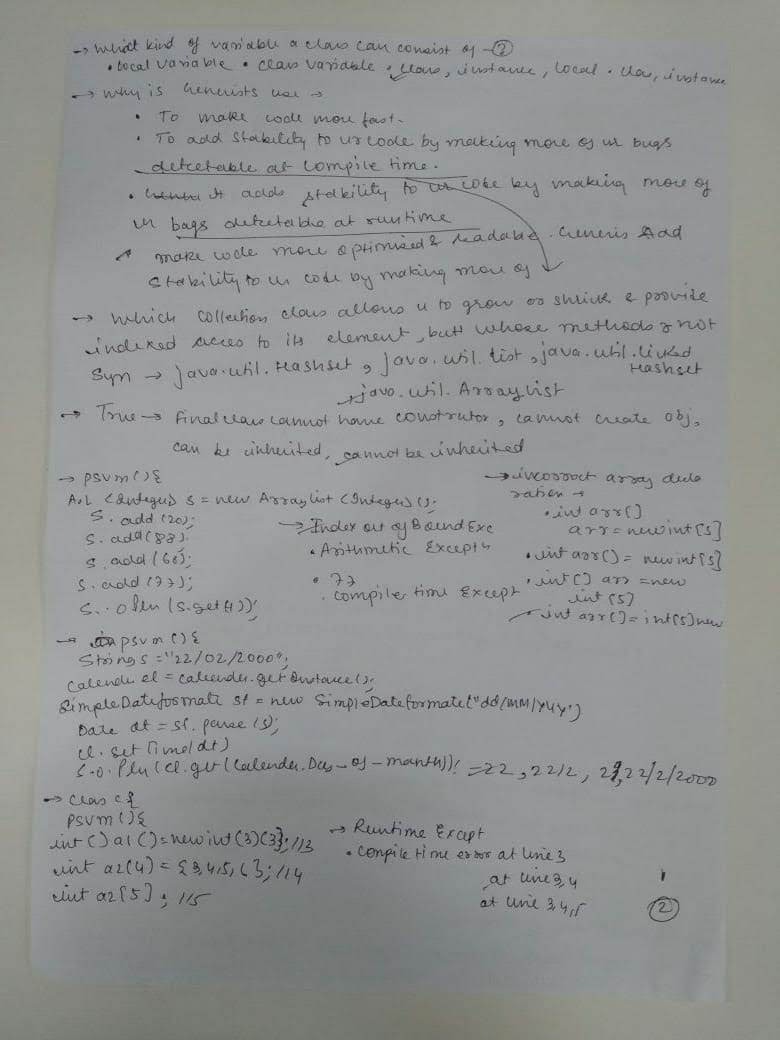 → which kind of variable a class can consist of - ②
• local variable • class variable • class, instance, local • class, instance
→ why is Generists use →
• To make code more fast.
• To add stability to ur code by making more of ur bugs
detcetable at compile time.
• It adds stability to ur code by making more of
ur bags detcetable at runtime
make code more optimized & readable. Generis Add
stability to ur code by making more of
→ which collection class allows u to grow or shrink & provide
indexed acces to its element, butt whose methods r not
Syn → java.util.Hashset, java.util.list, java.util.linked
Hashset
java.util.ArrayList
→ True → final class cannot have construtor, cannot create obj,
can be inherited, cannot be inherited
→ psvm(){
A.L <Integer> s = new ArrayList <Integer>();
s.add(20);
s.add(88);
s.add(60);
s.add(77);
S..o Pln (s.get());
→ Index out of Bound Exc
• Arithmetic Except
• 77
• compiler time Except
→ incorrect array decla
ration →
• int arr[]
arr = new int[5]
• int arr[] = new int[5]
• int[] arr = new
int[5]
int arr[] = int[5] new
→ psvm(){
String s = "22/02/2000";
Calender cl = calender.getInstance();
SimpleDateformate sf = new SimpleDateformate("dd/MM/yyyy")
Date dt = sf.parse(s);
cl.setTime(dt)
S.o.Pln(cl.get(Calender.Day-of-month)); = 22, 22/2, 22/2/2000
→ class c{
psvm(){
int[] a1[] = new int[3][3]; //3
int a2[4] = {3,4,5,6}; //4
int a2[5]; //5
→ Runtime Except
• compile time error at line 3
at line 3,4
at line 3,4,5
②